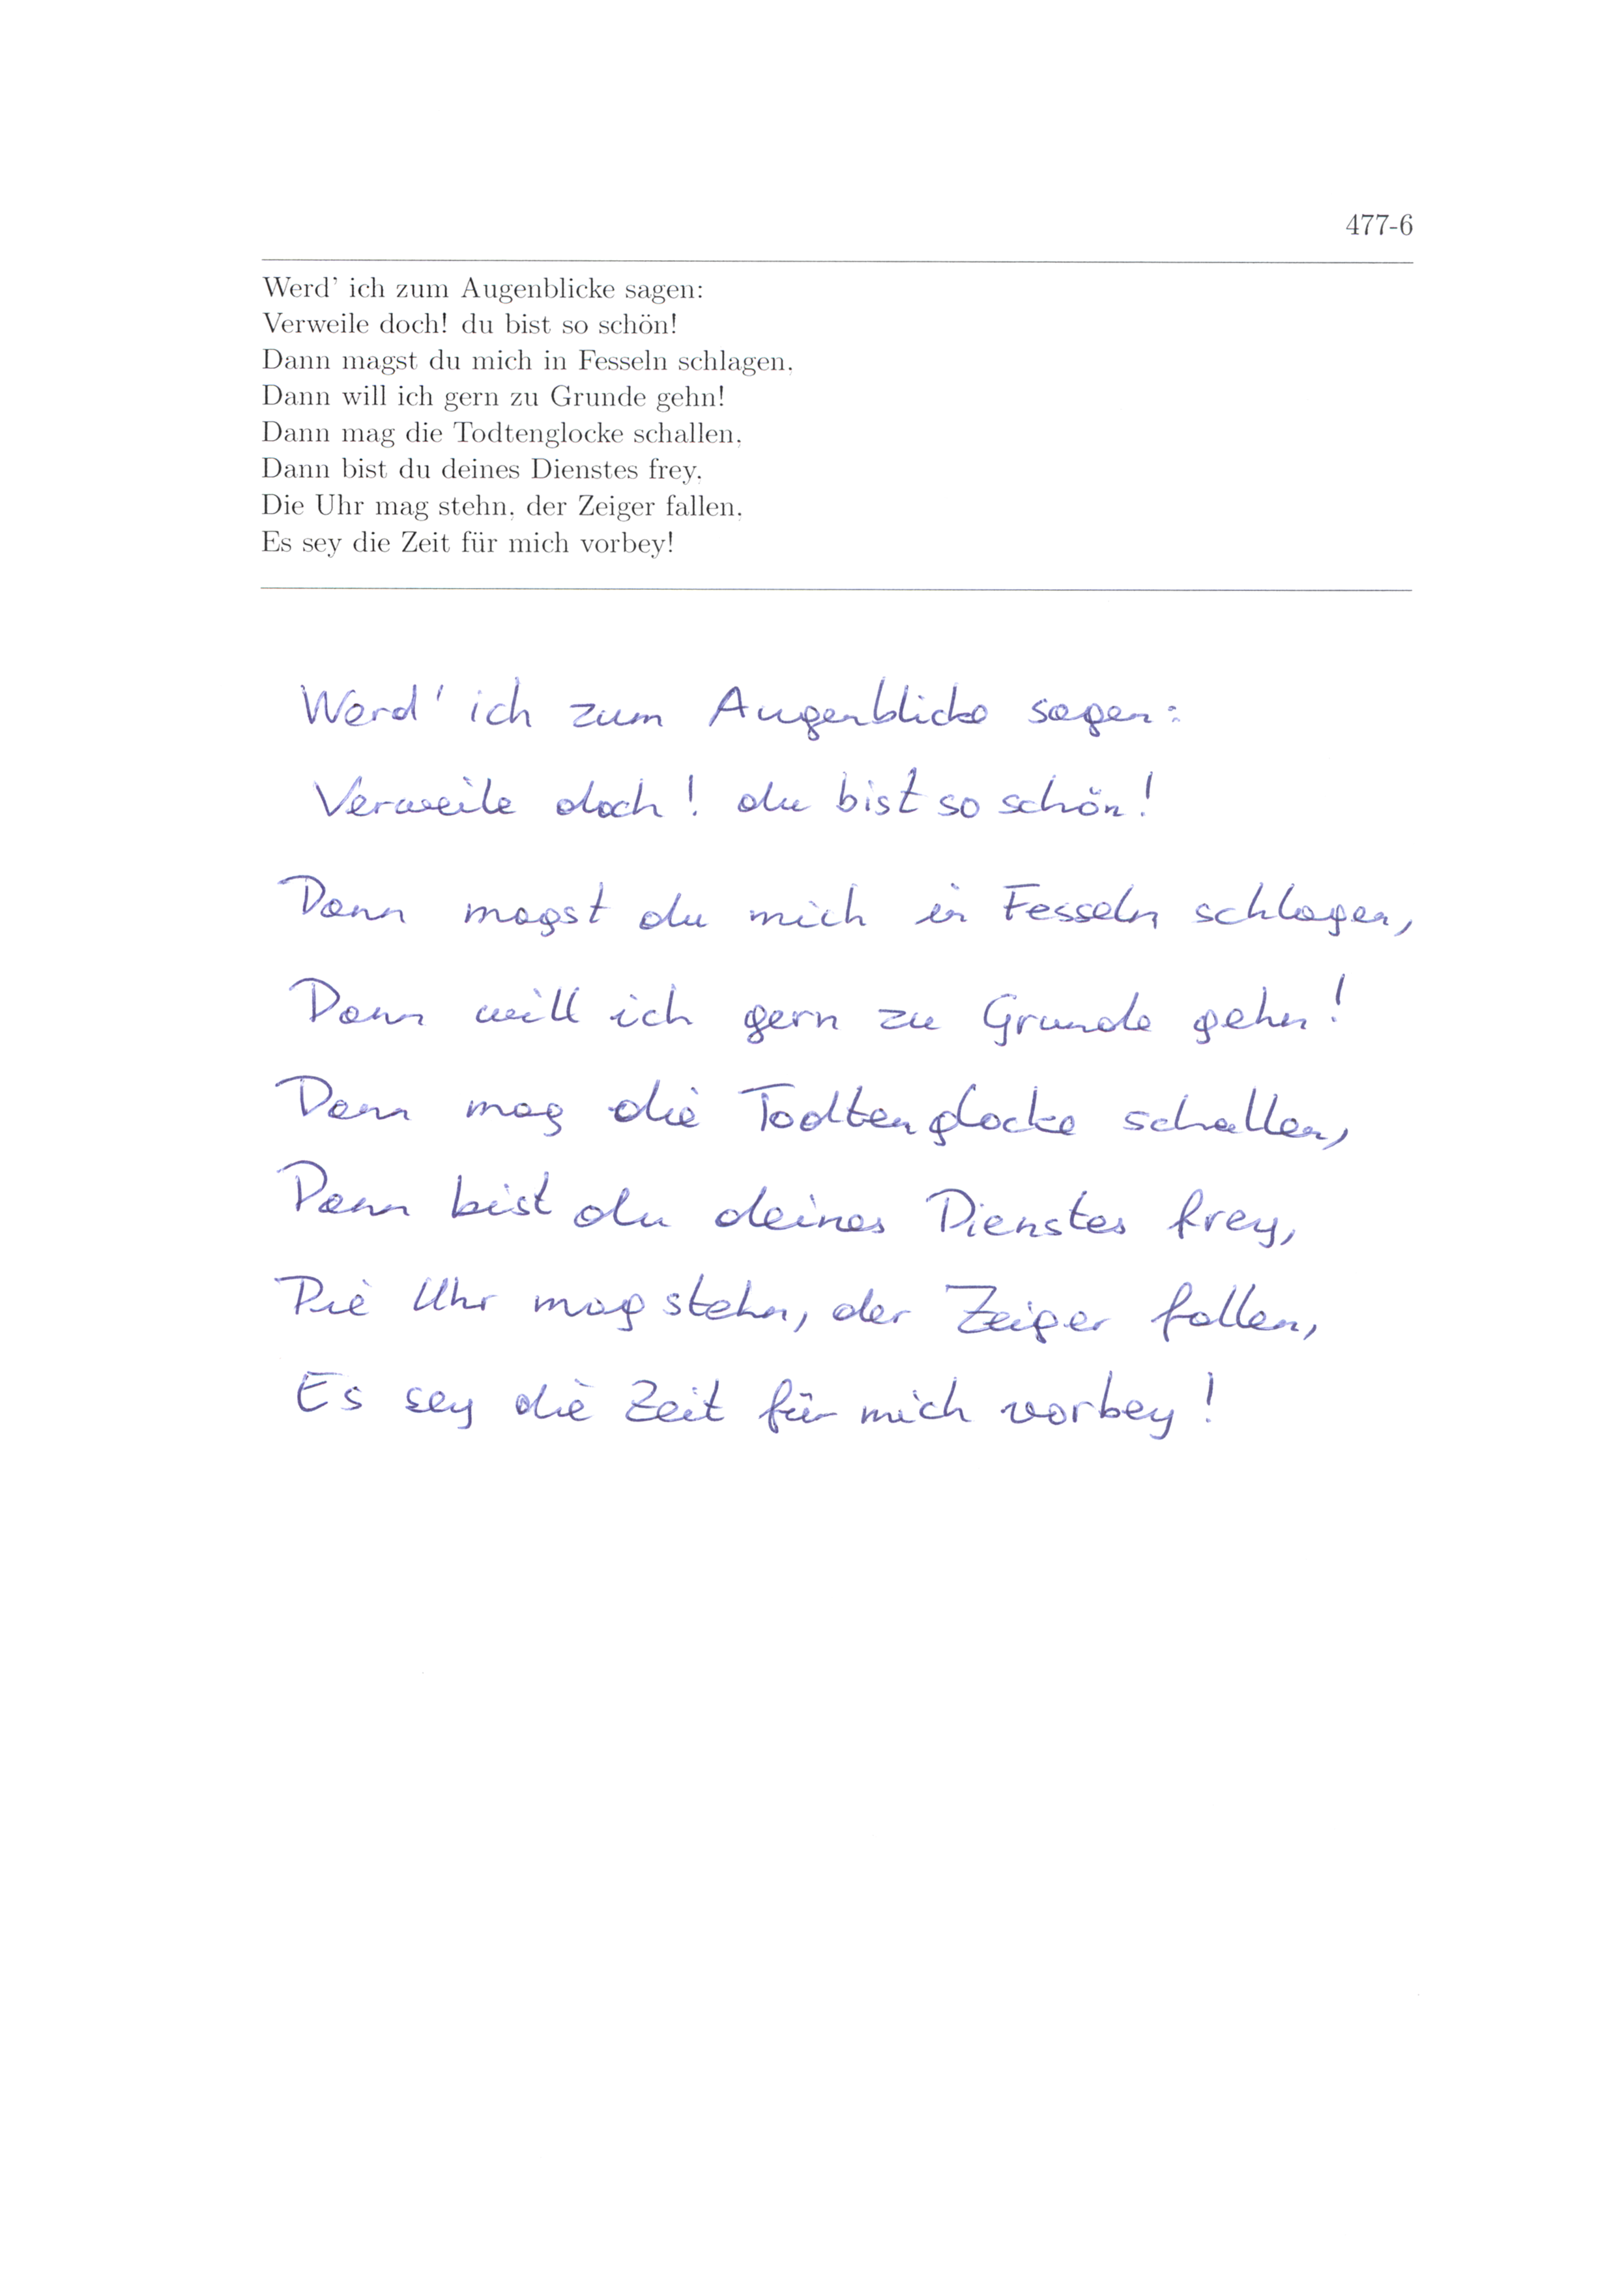 477-6
Werd' ich zum Augenblicke sagen:
Verweile doch! du bist so schön!
Dann magst du mich in Fesseln schlagen,
Dann will ich gern zu Grunde gehn!
Dann mag die Todtenglocke schallen,
Dann bist du deines Dienstes frey,
Die Uhr mag stehn, der Zeiger fallen,
Es sey die Zeit für mich vorbey!
Werd' ich zum Augenblicke sagen:
Verweile doch! du bist so schön!
Dann magst du mich in Fesseln schlagen,
Dann will ich gern zu Grunde gehn!
Dann mag die Todtenglocke schallen,
Dann bist du deines Dienstes frey,
Die Uhr mag stehn, der Zeiger fallen,
Es sey die Zeit für mich vorbey!